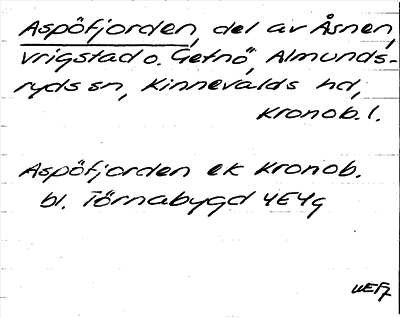 Aspöfjorden, del av Åsnen,
Vrigstad o. Getnö, Almunds-
ryds sn, Kinnevalds hd,
Kronob. l.
Aspöfjorden ek Kronob.
bl. Törnabygd 4E4g